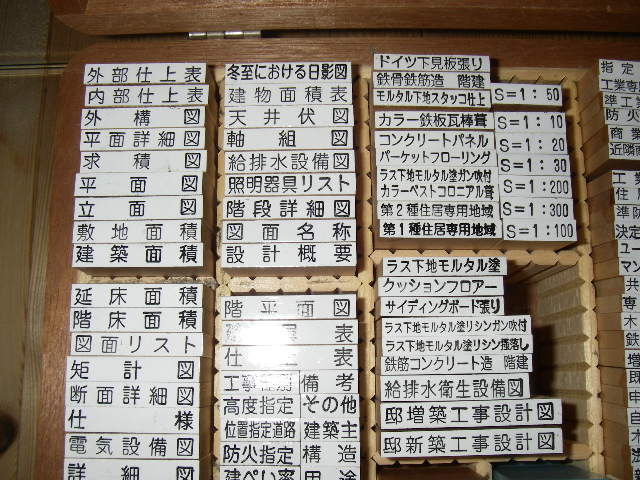 外部仕上表
内部仕上表
外構図
平面詳細図
求積図
平面図
立面図
敷地面積
建築面積
延床面積
階床面積
図面リスト
矩計図
断面詳細図
仕様
電気設備図
詳細図
冬至における日影図
建物面積表
天井伏図
軸組図
給排水設備図
照明器具リスト
階段詳細図
図面名称
設計概要
階平面図
表
仕 表
備考
高度指定 その他
位置指定道路 建築主
防火指定 構造
建ぺい率 用途
ドイツ下見板張り
鉄骨鉄筋造 階建
モルタル下地スタッコ仕上
カラー鉄板瓦棒葺
コンクリートパネル
パーケットフローリング
ラス下地モルタル塗ガン吹付
カラーベストコロニアル葺
第2種住居専用地域
第1種住居専用地域
S=1:50
S=1:10
S=1:20
S=1:30
S=1:200
S=1:300
S=1:100
ラス下地モルタル塗
クッションフロアー
サイディングボード張り
ラス下地モルタル塗リシンガン吹付
ラス下地モルタル塗リシン掻落し
鉄筋コンクリート造 階建
給排水衛生設備図
邸増築工事設計図
邸新築工事設計図
指定
工業専
準工
防火
商業
近隣